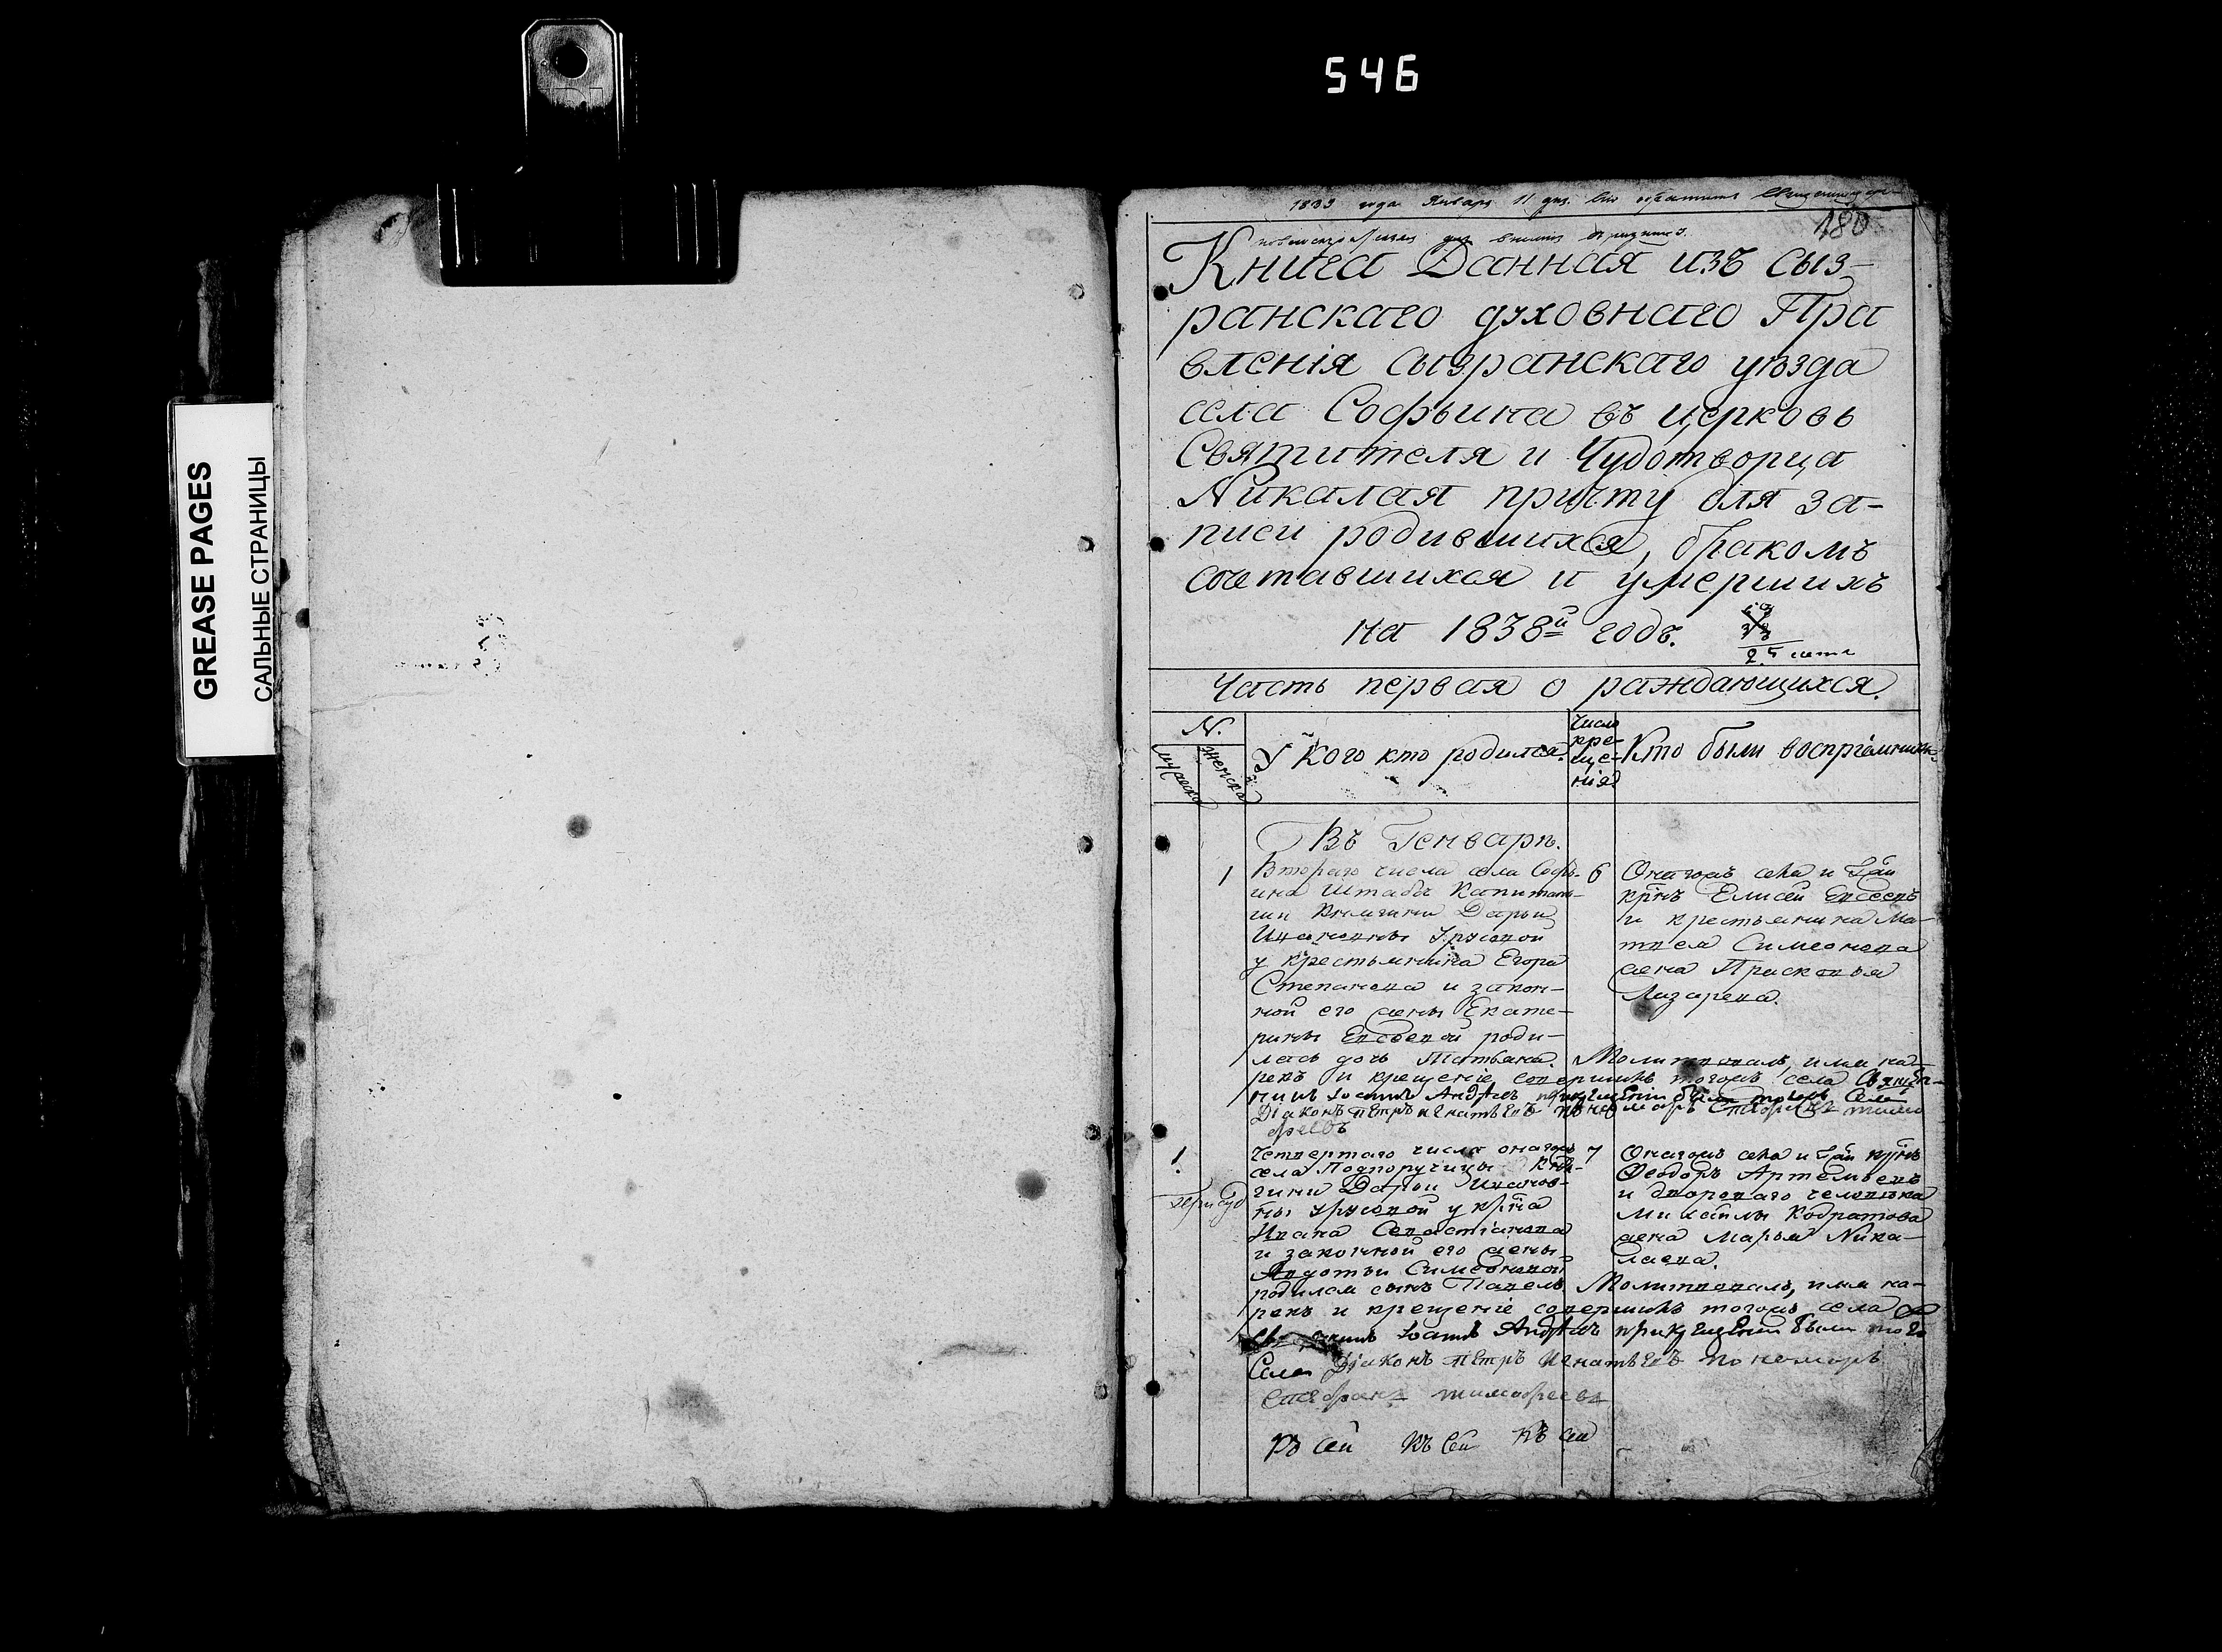 546
GREASE PAGES
САЛЬНЫЕ СТРАНИЦЫ
1839 года Января 11 дня
180
Книга Данная изъ Сыз-
ранскаго духовнаго Пра
вленія сызранскаго уѣзда
села Софьина въ церковь
Святителя и Чудотворца
Николая причту для за-
писи родившихся, бракомъ
сочетавшихся и умершихъ
на 1838й годъ.
Часть первая о раждающихся.
N.
мужеска
женска
У кого кто родился.
Число
кре-
ще-
нія
Кто были воспріемники
Въ Генварѣ.
1
Втораго числа села Софь-
ина Штабсъ Капитан-
ши Княгини Дарьи
Ивановны Урусовой
у крестьянина Егора
Степанова и закон-
ной его жены Екате-
рины Евсѣевой роди-
лась дочь Татьяна.
6
Онагожъ села и
крнъ Елисей Евсеевъ
и крестьянина Ма-
твея Симеонова
жена Прасковья
Лазарева.
Молитвовалъ, имя на-
рекъ и крещеніе совершилъ тогожъ села Священ-
никъ Іоаннъ Андреевъ при крещеніи были тогожъ Села
Діаконъ петръ игнатьевъ пономарь Стефанъ тимо
феевъ
1.
Четвертаго числа онагожъ
села Подпоручицы Кня-
гини Дарьи Иванов-
ны Урусовой у крнна
Ивана Севастіанова
и законной его жены
Авдотьи Симеоновой
родился сынъ Павелъ
7
Онагожъ села и крнъ
Феодоръ Артемьевъ
и двороваго человѣка
Михайлы Кодратова
жена Марья Нико-
лаева.
Молитвовалъ, имя на-
рекъ и крещеніе совершилъ тогожъ села
Іоаннъ Андреевъ при крещеніи были того
Села Діаконъ петръ Игнатьевъ пономарь
Стефанъ тимофеевъ
Къ сей Къ Сей Къ сей